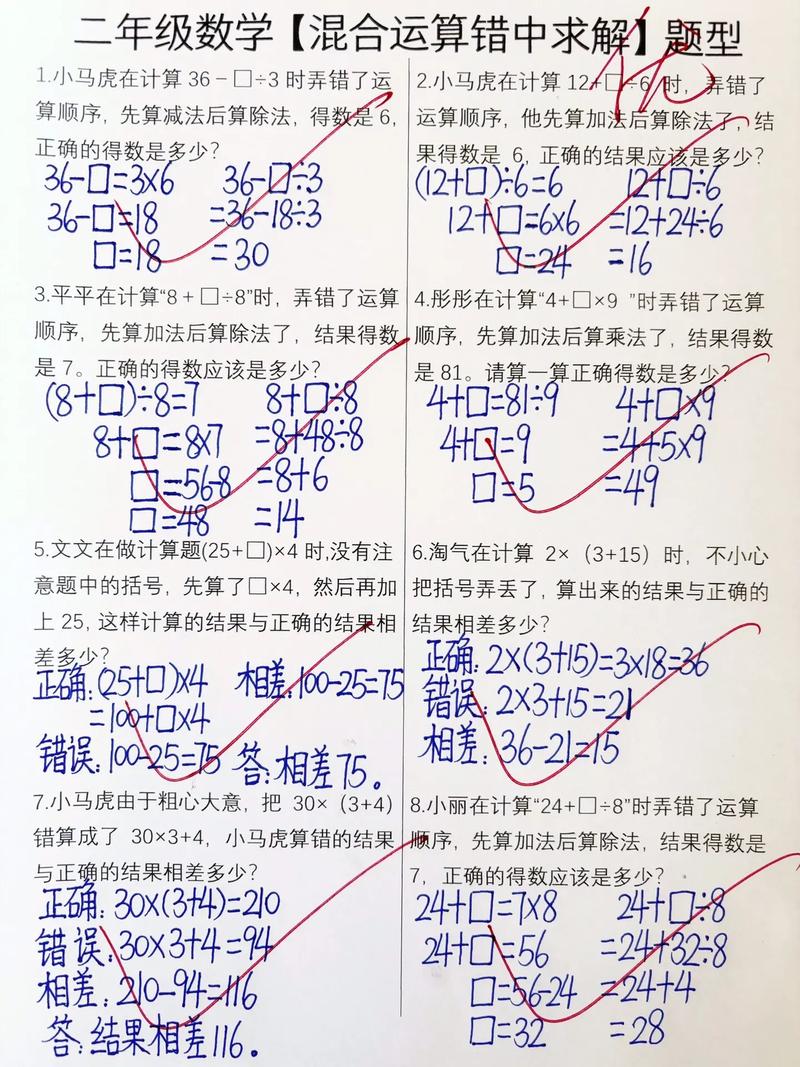 二年级数学【混合运算错中求解】题型
优
1.小马虎在计算 36－□÷3 时弄错了运
算顺序，先算减法后算除法，得数是 6，
正确的得数是多少？
36-□=3×6 36-□÷3
36-□=18 =36-18÷3
□=18 =30
2.小马虎在计算 12+□÷6 时，弄错了
运算顺序，他先算加法后算除法了，结
果得数是 6, 正确的结果应该是多少？
(12+□)÷6=6 12+□÷6
12+□=6×6 =12+24÷6
□=24 =16
3.平平在计算“8＋□÷8”时，弄错了运算
顺序，先算加法后算除法了，结果得数
是 7。正确的得数应该是多少？
(8+□)÷8=7 8+□÷8
8+□=8×7 =8+48÷8
□=56-8 =8+6
□=48 =14
4.彤彤在计算“4+□×9 ”时弄错了运算
顺序，先算加法后算乘法了，结果得数
是 81。请算一算正确得数是多少？
4+□=81÷9 4+□×9
4+□=9 =4+5×9
□=5 =49
5.文文在做计算题(25+□)×4 时,没有注
意题中的括号，先算了□×4，然后再加
上 25, 这样计算的结果与正确的结果相
差多少？
正确:(25+□)×4 相差:100-25=75
=100+□×4
错误:100-25=75 答:相差75。
6.淘气在计算 2×（3+15）时，不小心
把括号弄丢了, 算出来的结果与正确的
结果相差多少？
正确:2×(3+15)=3×18=36
错误:2×3+15=21
相差:36-21=15
7.小马虎由于粗心大意，把 30×（3+4）
错算成了 30×3+4，小马虎算错的结果
与正确的结果相差多少？
正确:30×(3+4)=210
错误:30×3+4=94
相差:210-94=116
答:结果相差116。
8.小丽在计算“24+□÷8”时弄错了运算
顺序，先算加法后算除法，结果得数是
7，正确的得数应该是多少？
24+□=7×8 24+□÷8
24+□=56 =24+32÷8
□=56-24 =24+4
□=32 =28